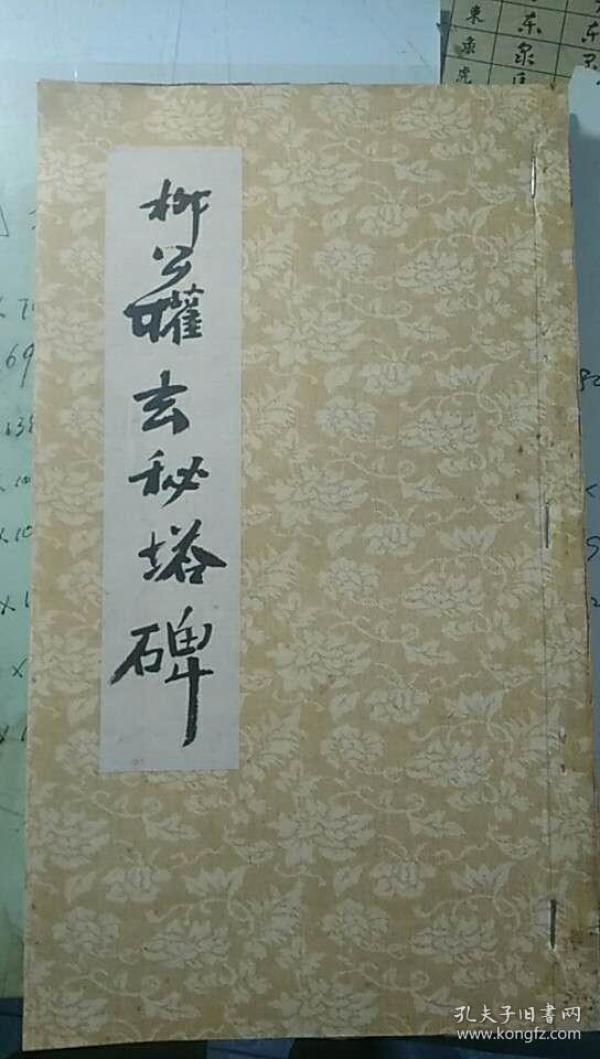 柳公權玄秘塔碑
東 东
泉
虎
孔夫子旧书网
www.kongfz.com